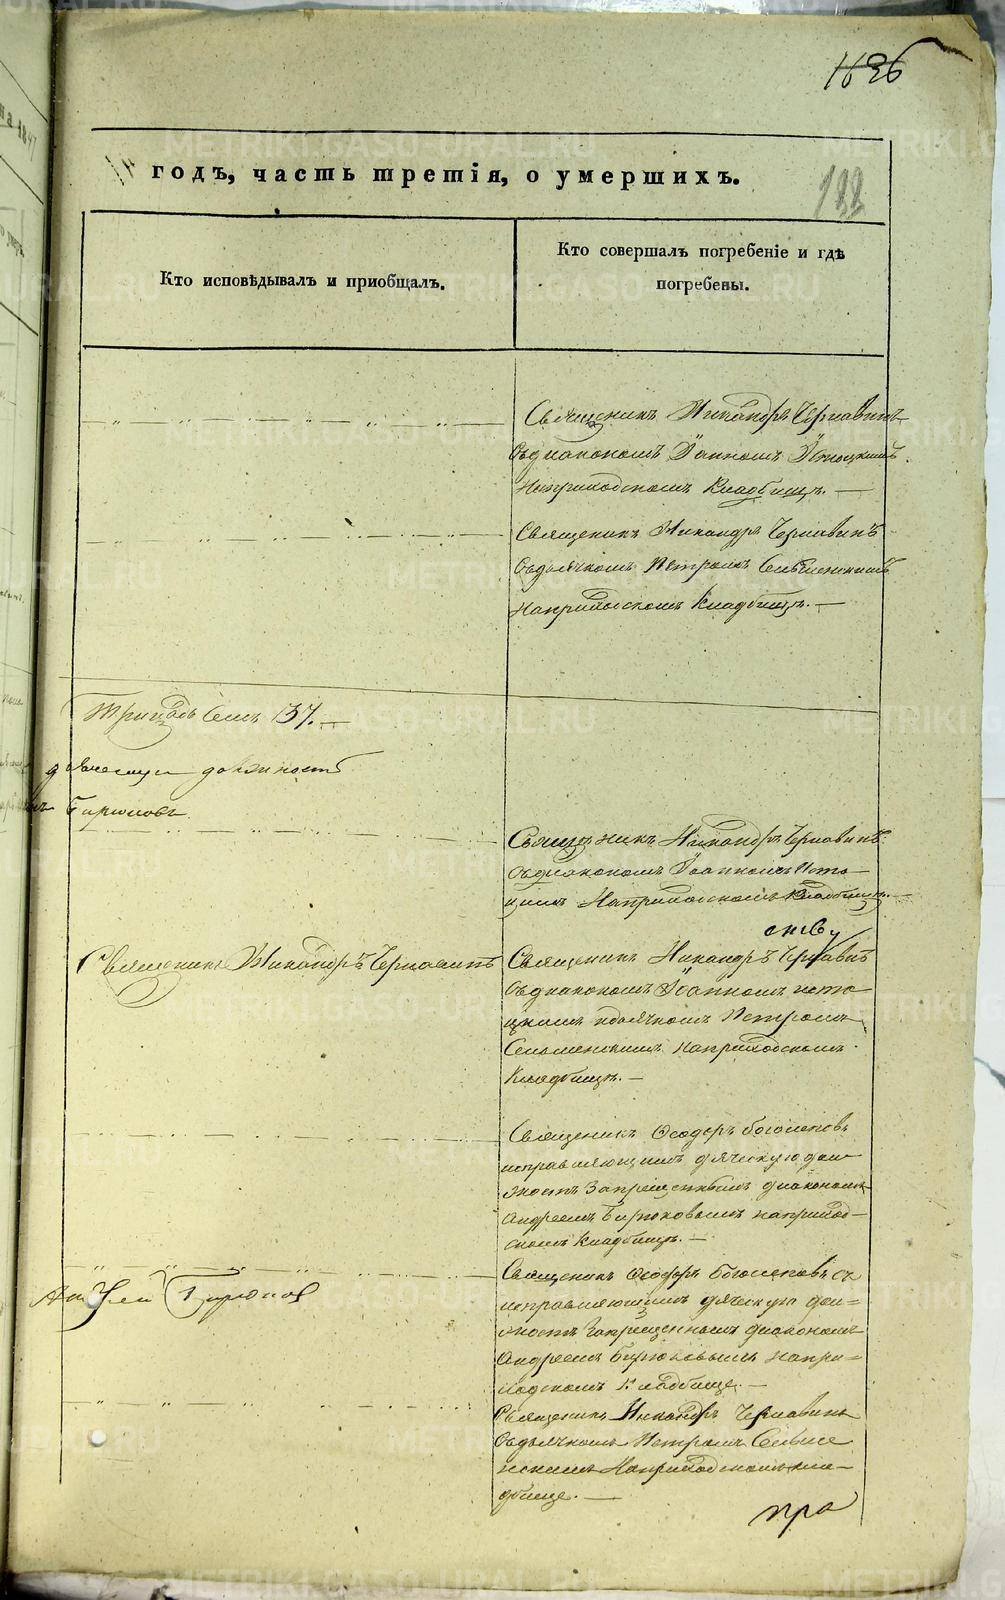 1636
годъ, часть третія, о умершихъ.
188
Кто исповѣдывалъ и приобщалъ.
Кто совершалъ погребеніе и гдѣ
погребены.
Священникъ Никандръ Чернавинъ
съ діакономъ Іоанномъ
на приходскомъ кладбищѣ. —
Священикъ Никандръ Чернавинъ
съ дьячкомъ Петромъ
на приходскомъ кладбищѣ. —
Тридцать семь 37. —
должность
Бирюковъ
Священикъ Никандръ Чернавинъ
съ діакономъ Іоанномъ
на приходскомъ кладбищѣ. —
Священикъ Никандръ Чернавинъ
Священикъ Никандръ Чернавинъ
съ діакономъ Іоанномъ
дьячкомъ Петромъ
на приходскомъ
кладбищѣ. —
Священикъ Ѳеодоръ Боголеповъ
исправляющимъ дяческую дол-
жность запрещеннымъ діакономъ
Андреемъ Бирюковымъ на приход-
скомъ кладбищѣ. —
Священикъ Ѳеодоръ Боголеповъ съ
исправляющимъ дяческую дол=
жность запрещеннымъ діакономъ
Андреемъ Бирюковымъ на при=
ходскомъ кладбище. —
Андрей Бирюков
Священикъ Никандръ Чернавинъ
съ дьячкомъ Петромъ
на приходскомъ кла-
дбище. —
пра
METRIKI.GASO-URAL.RU